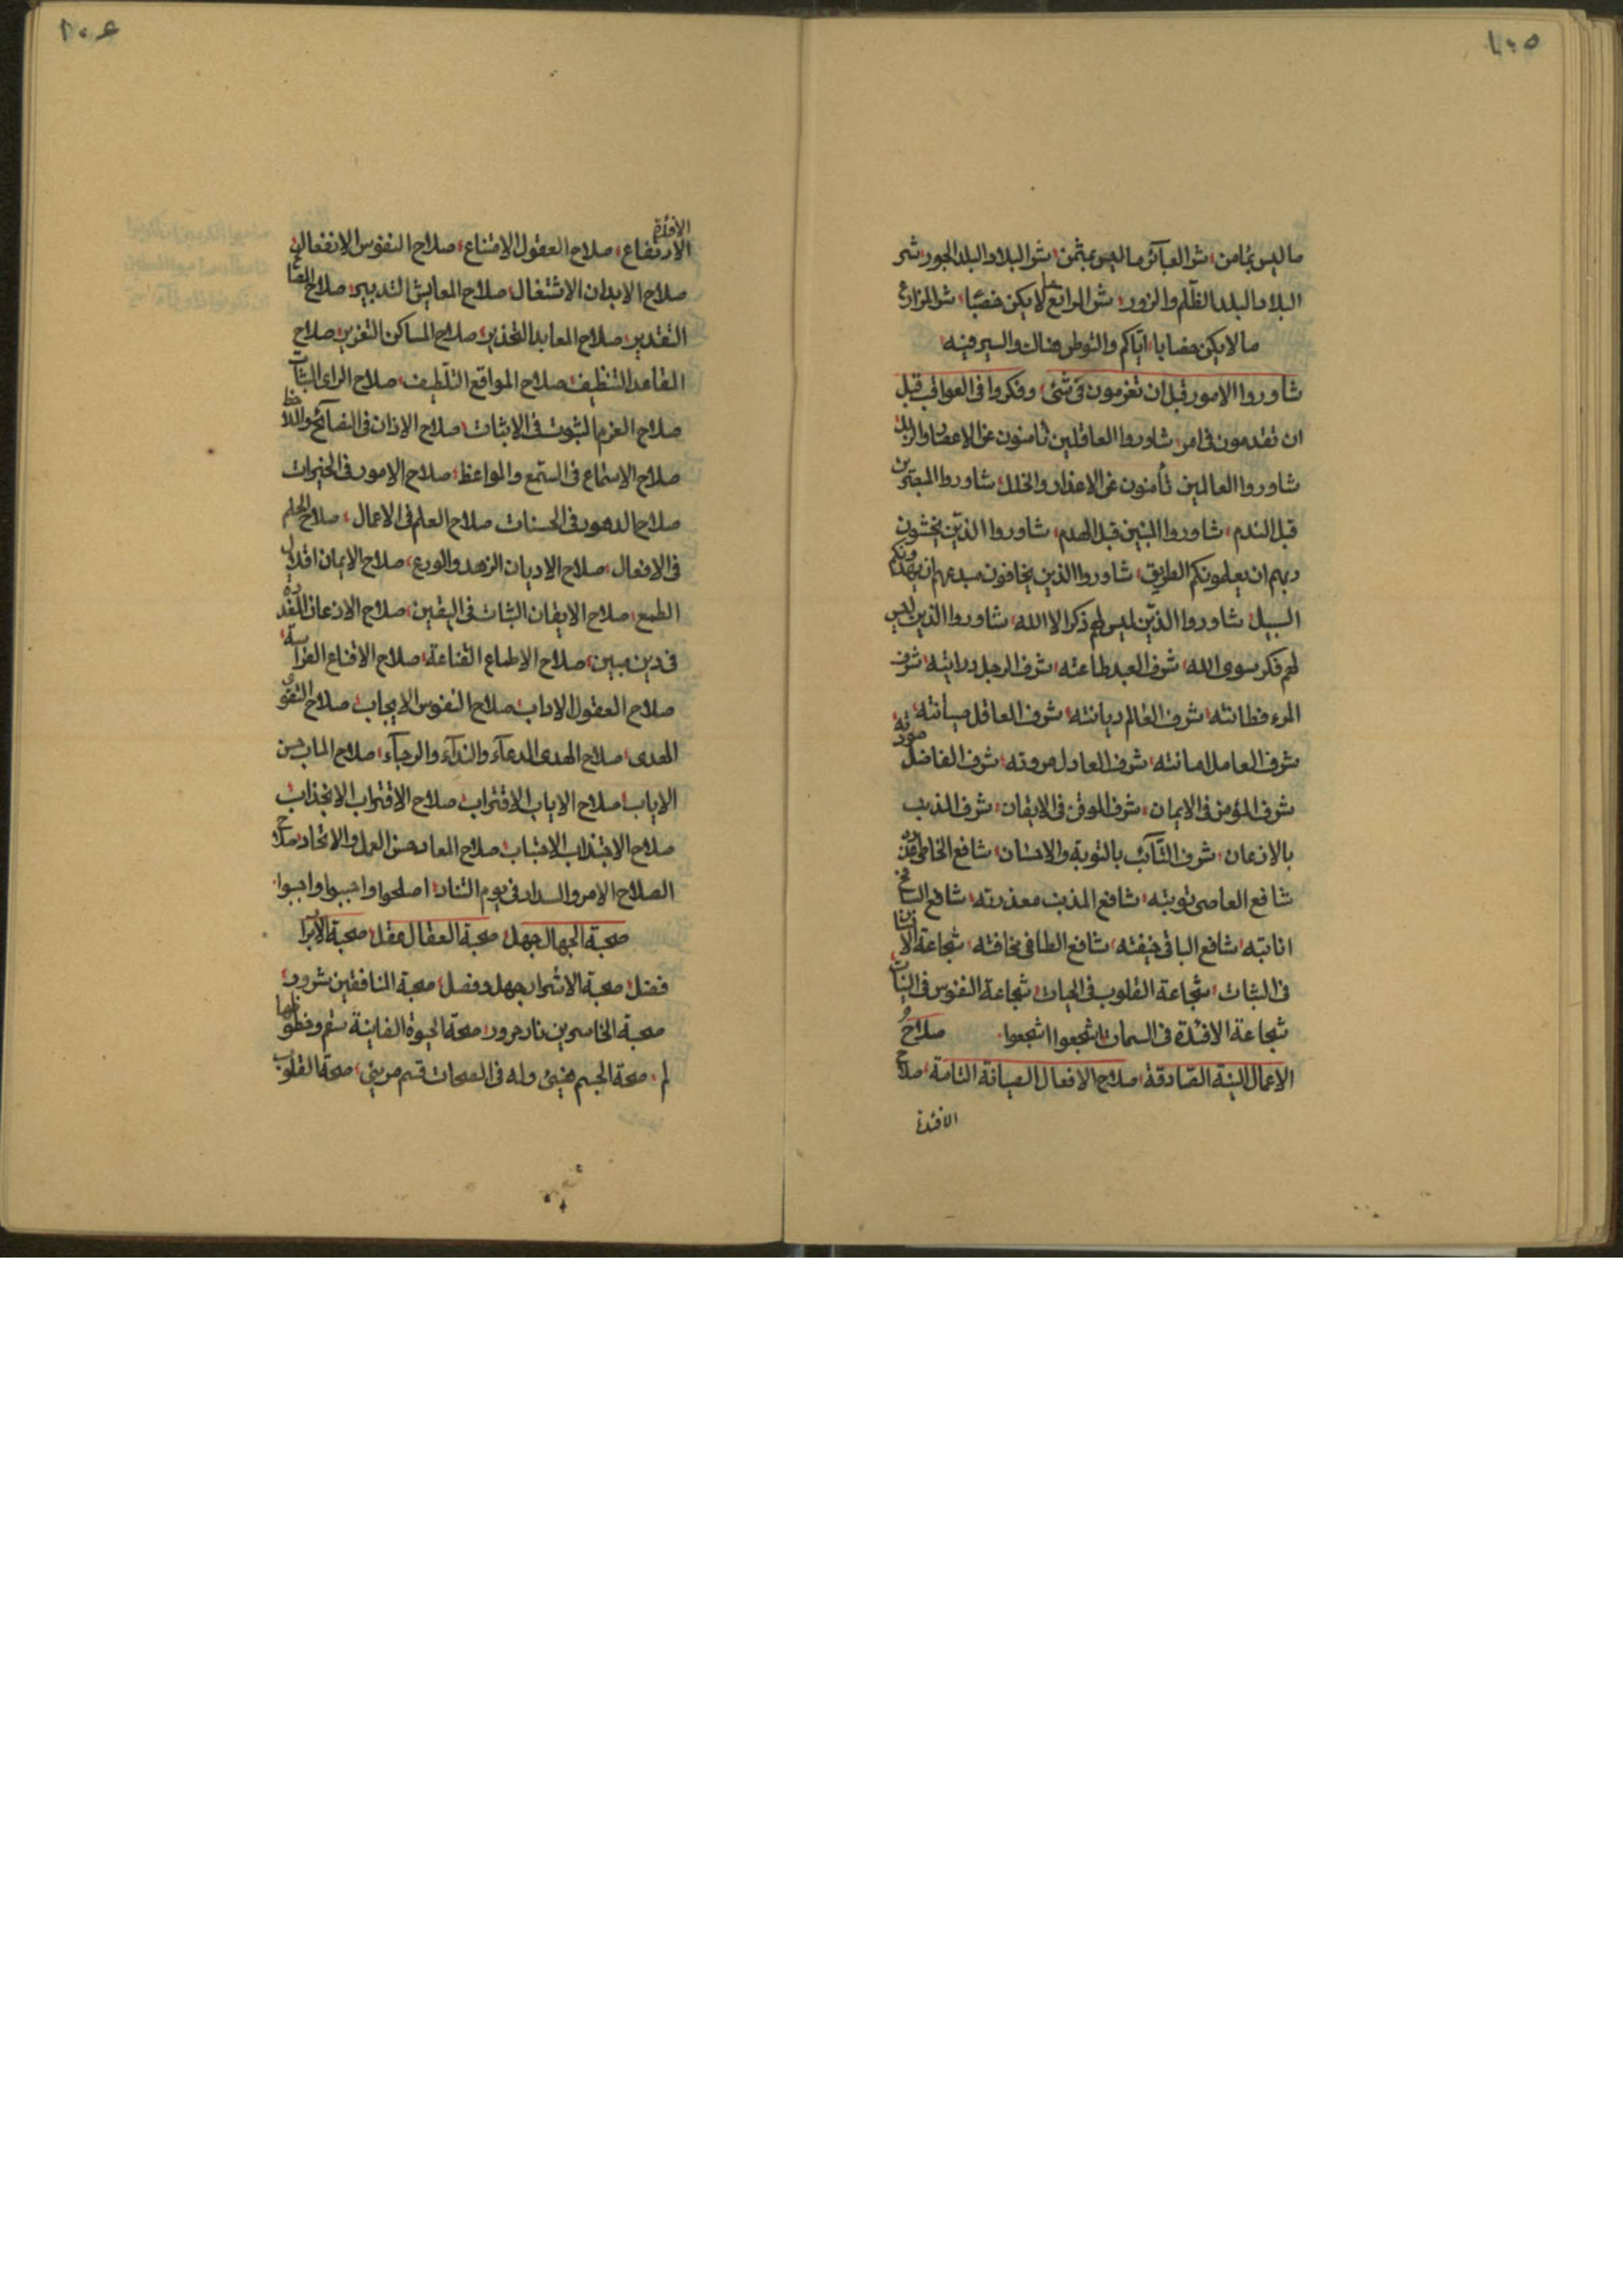 ١٠٥
ما ليس بثامن، شر العبآئر ما ليس بمثمن، شر البلاد البلد الجور، شر
البلاد البلد الظلم والزور، شر المرابع ما لا يكن خصبًا، شر المزارع
ما لا يكن مضابا، اياكم والتوطن هناك والسير فيه
شاوروا الامور قبل ان تعزمون فى شئ، وفكروا فى العواقب قبل
ان تقدمون فى امر، شاوروا العاقلين تأمنون عن الاعصار والزلل
شاوروا العالمين تأمنون عن الاعذار والخلل، شاوروا المجربين
قبل الندم، شاوروا المبنين قبل الهدم، شاوروا الذين يخشون
ربهم ان يعلمونكم الطريق، شاوروا الذين يخافون مبدعهم ان يهدونكم
السبيل، شاوروا الذين ليس لهم ذكر الا الله، شاوروا الذين ليس
لهم فكر سوى الله، شرف العبد طاعته، شرف الرجل درايته، شرف
المرء فطانته، شرف العالم ديانته، شرف العاقل صيانته،
شرف العامل امانته، شرف العادل مروته، شرف الفاضل مودته
شرف المؤمن فى الايمان، شرف الموقن فى الايقان، شرف المذنب
بالاذعان، شرف التآئب بالتوبة والاحسان، شافع الخاطى
شافع العاصى توبته، شافع المذنب معذرته، شافع
انابته، شافع الباقى خيفته، شافع الطاغى مخافته، شجاعة
فى الثبات، شجاعة القلوب فى الحيات، شجاعة النفوس فى
شجاعة الافئدة فى السمات، اشجعوا اشجعوا. صلاح
الاعمال النية الصادقة، صلاح الافعال الصيانة التامة، صلاح
الافئدة
١٠٦
الافئدة
الارتفاع، صلاح العقول الامتناع، صلاح النفوس الانفعال،
صلاح الابدان الاشتغال، صلاح المعايش التدبير، صلاح
التقدير، صلاح المعابد التحذير، صلاح المساكن التعزير، صلاح
المقاعد التنظيف، صلاح المواقع التلطيف، صلاح الراى الثبات
صلاح العزم الثبوت فى الاثبات، صلاح الاذان فى النصآئح والملاحظ
صلاح الاستماع فى السمع والمواعظ، صلاح الامور فى الخيرات
صلاح الدهور فى الحسنات، صلاح العلم فى الاعمال، صلاح الحلم
فى الافعال، صلاح الاديان الزهد والورع، صلاح الايمان اقلال
الطمع، صلاح الايقان الثبات فى اليقين، صلاح الاذعان
فى دين مبين، صلاح الاطماع القناعة، صلاح الاقناع
صلاح العقول الاداب، صلاح النفوس الايجاب، صلاح التقوى
الهدى، صلاح الهدى الدعآء والندآء والرجآء، صلاح الماب حسن
الاياب، صلاح الاياب الاقتراب، صلاح الاقتراب الانجذاب
صلاح الاجتذاب الاجتباب، صلاح المعاد حسن العمل والاتحاد، صلاح
الصلاح الامر والسداد فى يوم التناد، اصلحوا واجيبوا واجيبوا.
صحبة الجهال جهل، صحبة العقال عقل، صحبة الابرار
فضل، صحبة الاشرار جهل وفصل، صحبة المنافقين شرور،
صحبة الخاسرين نار حرور، صحة الحيوة الفانية سقم وخطوبها
لم، صحة الجسم هنيئ وله فى الصحات قسم مريئ، صحة القلوب